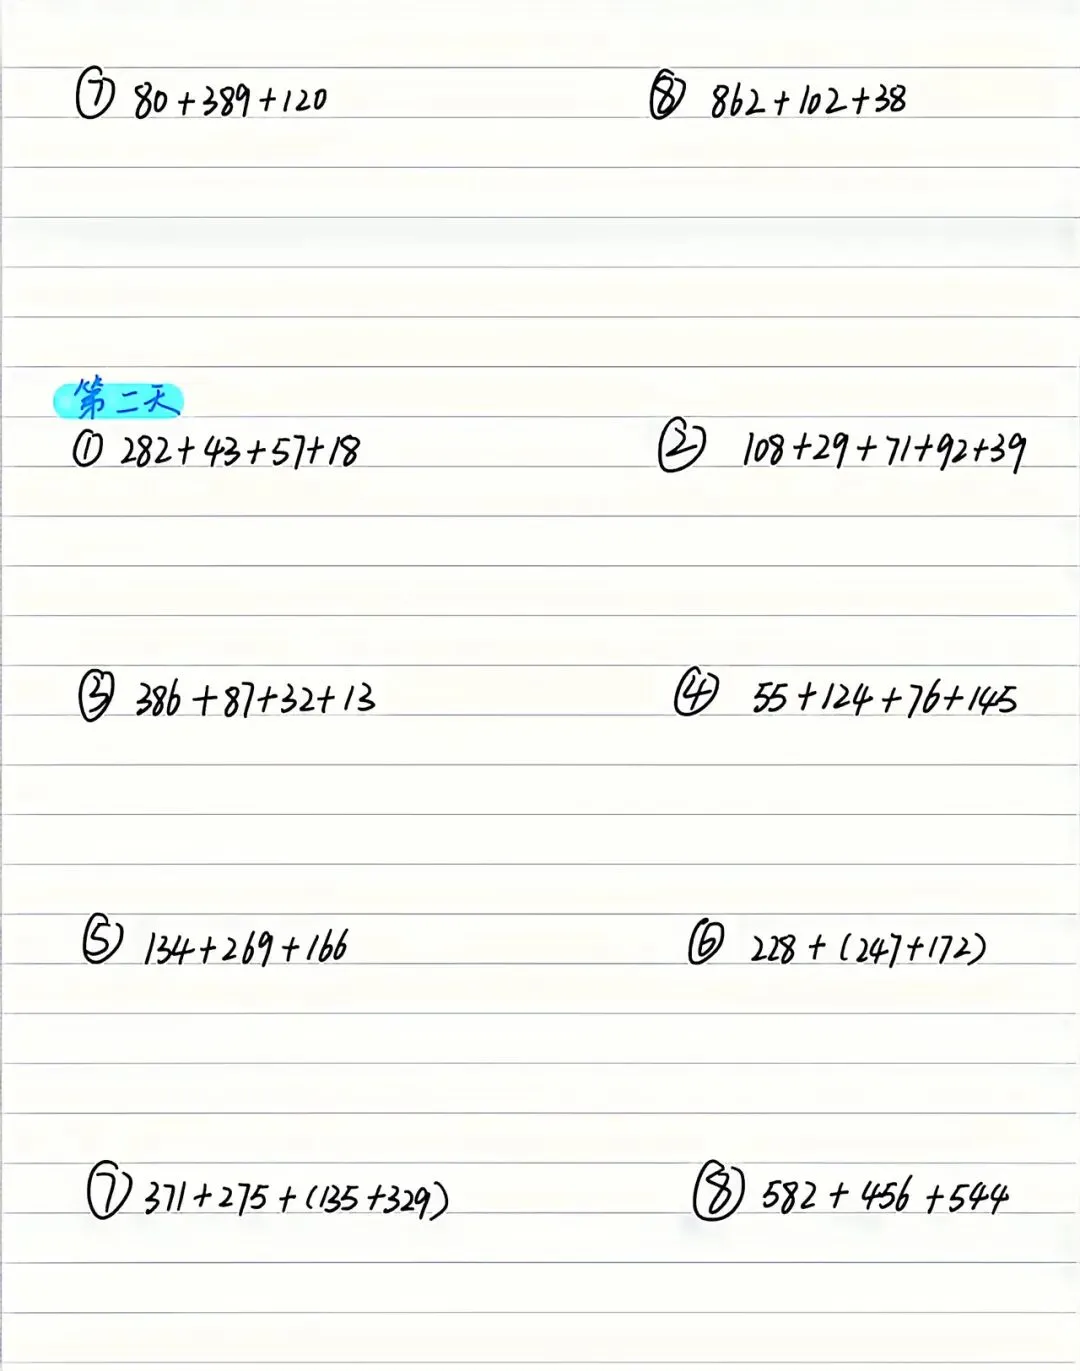 ⑦ 80+389+120 ⑧ 862+102+38
第二天
① 282+43+57+18 ② 108+29+71+92+39
③ 386+87+32+13 ④ 55+124+76+145
⑤ 134+269+166 ⑥ 228+(247+172)
⑦ 371+275+(135+329) ⑧ 582+456+544